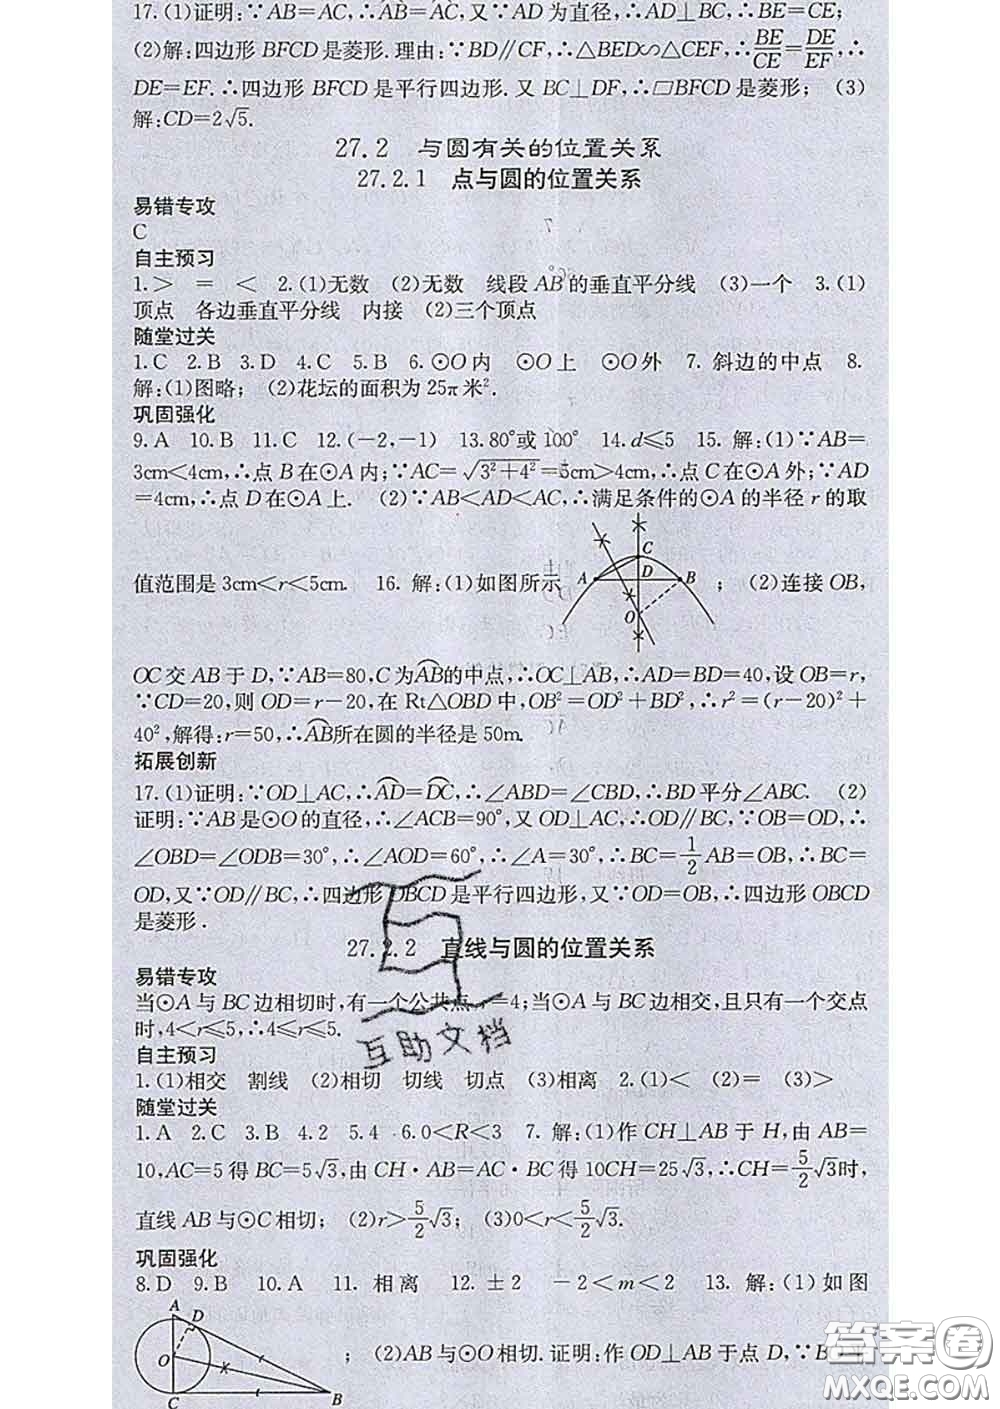 17.(1)证明:∵AB=AC,∴AB=AC,又∵AD为直径,∴AD⊥BC,∴BE=CE;
(2)解:四边形 BFCD 是菱形.理由:∵BD∥CF,∴△BED∽△CEF,∴BE/CE=DE/EF,∴
DE=EF.∴四边形 BFCD 是平行四边形.又 BC⊥DF,∴□BFCD 是菱形; (3)
解:CD=2√5.
27.2 与圆有关的位置关系
27.2.1 点与圆的位置关系
易错专攻
C
自主预习
1.> = < 2.(1)无数 (2)无数 线段 AB 的垂直平分线 (3)一个 3.(1)
顶点 各边垂直平分线 内接 (2)三个顶点
随堂过关
1.C 2.B 3.D 4.C 5.B 6.⊙O内 ⊙O上 ⊙O外 7. 斜边的中点 8.
解:(1)图略; (2)花坛的面积为 25π 米².
巩固强化
9.A 10.B 11.C 12.(-2,-1) 13.80°或 100° 14.d≤5 15. 解:(1)∵AB=
3cm<4cm,∴点 B 在⊙A 内;∵AC=√(3²+4²)=5cm>4cm,∴点 C 在⊙A 外;∵AD
=4cm,∴点 D 在⊙A 上. (2)∵AB<AD<AC,∴满足条件的⊙A 的半径 r 的取
值范围是 3cm<r<5cm. 16. 解:(1)如图所示 A B C D O ; (2)连接 OB,
OC 交 AB 于 D,∵AB=80,C 为AB的中点,∴OC⊥AB,∴AD=BD=40,设 OB=r,
∵CD=20,则 OD=r-20,在 Rt△OBD 中,OB²=OD²+BD²,∴r²=(r-20)²+
40²,解得:r=50,∴AB所在圆的半径是 50m.
拓展创新
17.(1)证明:∵OD⊥AC,∴AD=DC,∴∠ABD=∠CBD,∴BD 平分∠ABC. (2)
证明:∵AB 是⊙O 的直径,∴∠ACB=90°,又 OD⊥AC,∴OD∥BC,∵OB=OD,∴
∠OBD=∠ODB=30°,∴∠AOD=60°,∴∠A=30°,∴BC=1/2AB=OB,∴BC=
OD,又∵OD∥BC,∴四边形 OBCD 是平行四边形,又∵OD=OB,∴四边形 OBCD
是菱形.
27.2.2 直线与圆的位置关系
易错专攻
当⊙A 与 BC 边相切时,有一个公共点,r=4;当⊙A 与 BC 边相交,且只有一个交点
时,4<r≤5,∴4≤r≤5.
互助文档
自主预习
1.(1)相交 割线 (2)相切 切线 切点 (3)相离 2.(1)< (2)= (3)>
随堂过关
1.A 2.C 3.B 4.2 5.4 6.0<R<3 7. 解:(1)作 CH⊥AB 于 H,由 AB=
10,AC=5 得 BC=5√3,由 CH·AB=AC·BC 得 10CH=25√3,∴CH=5/2√3时,
直线 AB 与⊙C 相切; (2)r>5/2√3; (3)0<r<5/2√3.
巩固强化
8.D 9.B 10.A 11. 相离 12. ±2 -2<m<2 13. 解:(1)如图
A D O C B ; (2)AB 与⊙O 相切.证明:作 OD⊥AB 于点 D,∵BO
答案圈
MXQE.COM